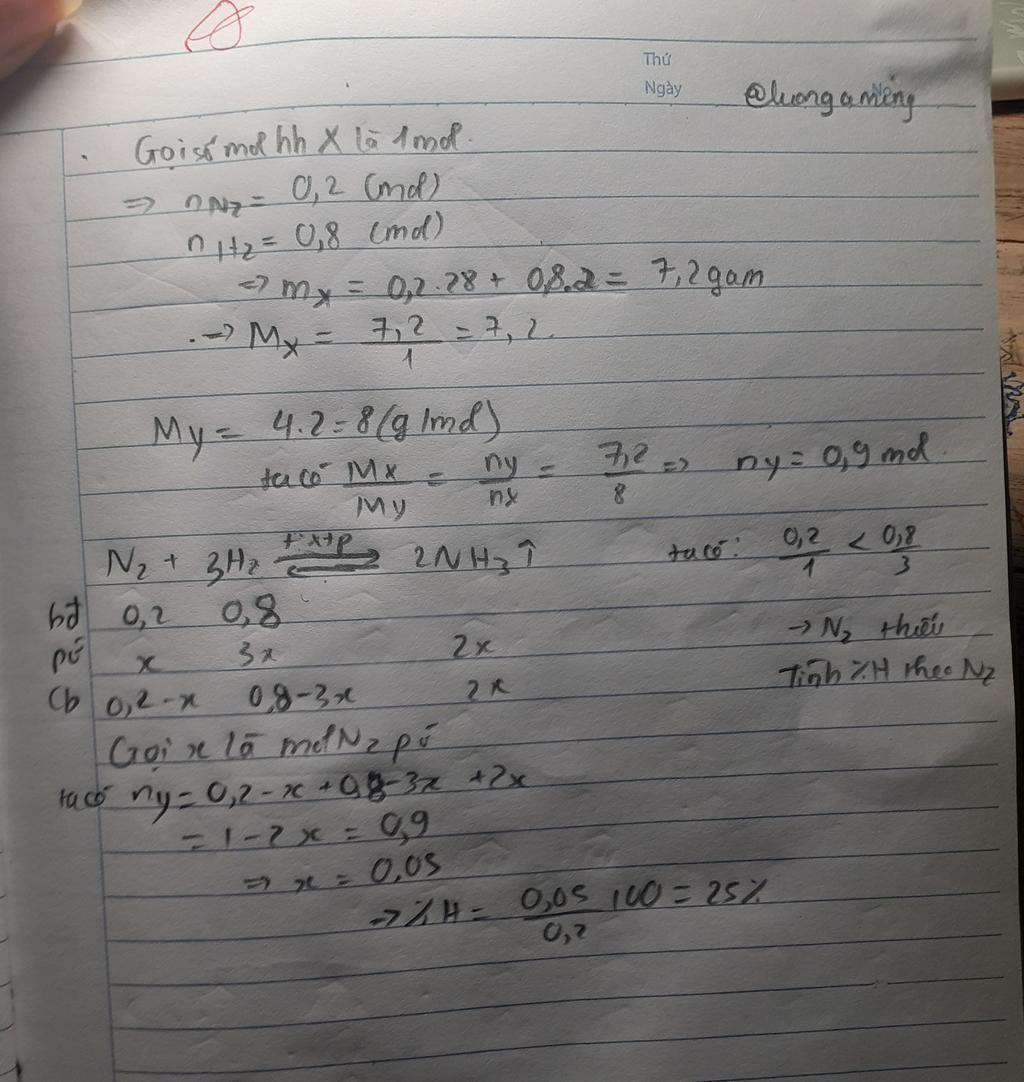 Thứ
Ngày
@luongaming
. Gọi số mol hh X là 1 mol.
=> nN2 = 0,2 (mol)
nH2 = 0,8 (mol)
=> mX = 0,2.28 + 0,8.2 = 7,2 gam
.→ MX = 7,2/1 = 7,2.
My = 4.2 = 8 (g/mol)
ta có Mx/My = ny/nx = 7,2/8 => ny = 0,9 mol.
N2 + 3H2 ⇌ 2NH3↑ ta có: 0,2/1 < 0,8/3
bđ 0,2 0,8
→ N2 thiếu
pứ x 3x 2x
Tính %H theo N2
Cb 0,2-x 0,8-3x 2x
Gọi x là mol N2 pứ
ta có ny = 0,2-x + 0,8-3x + 2x
= 1-2x = 0,9
=> x = 0,05
→ %H = 0,05/0,2 100 = 25%